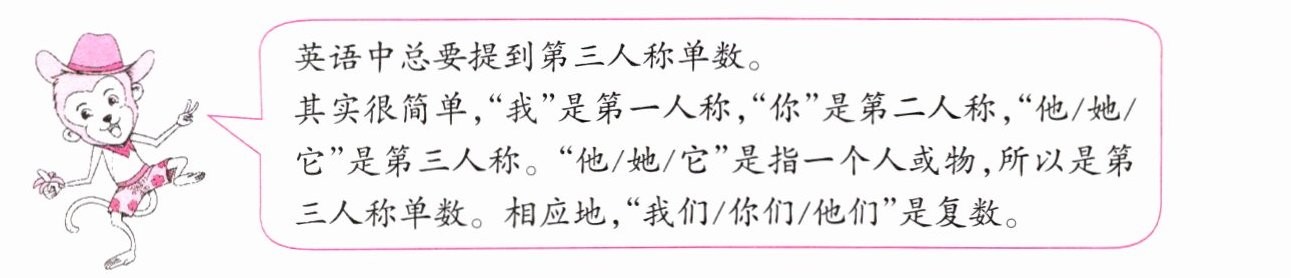 英语中总要提到第三人称单数。
其实很简单,“我”是第一人称,“你”是第二人称,“他/她/
它”是第三人称。“他/她/它”是指一个人或物,所以是第
三人称单数。相应地,“我们/你们/他们”是复数。